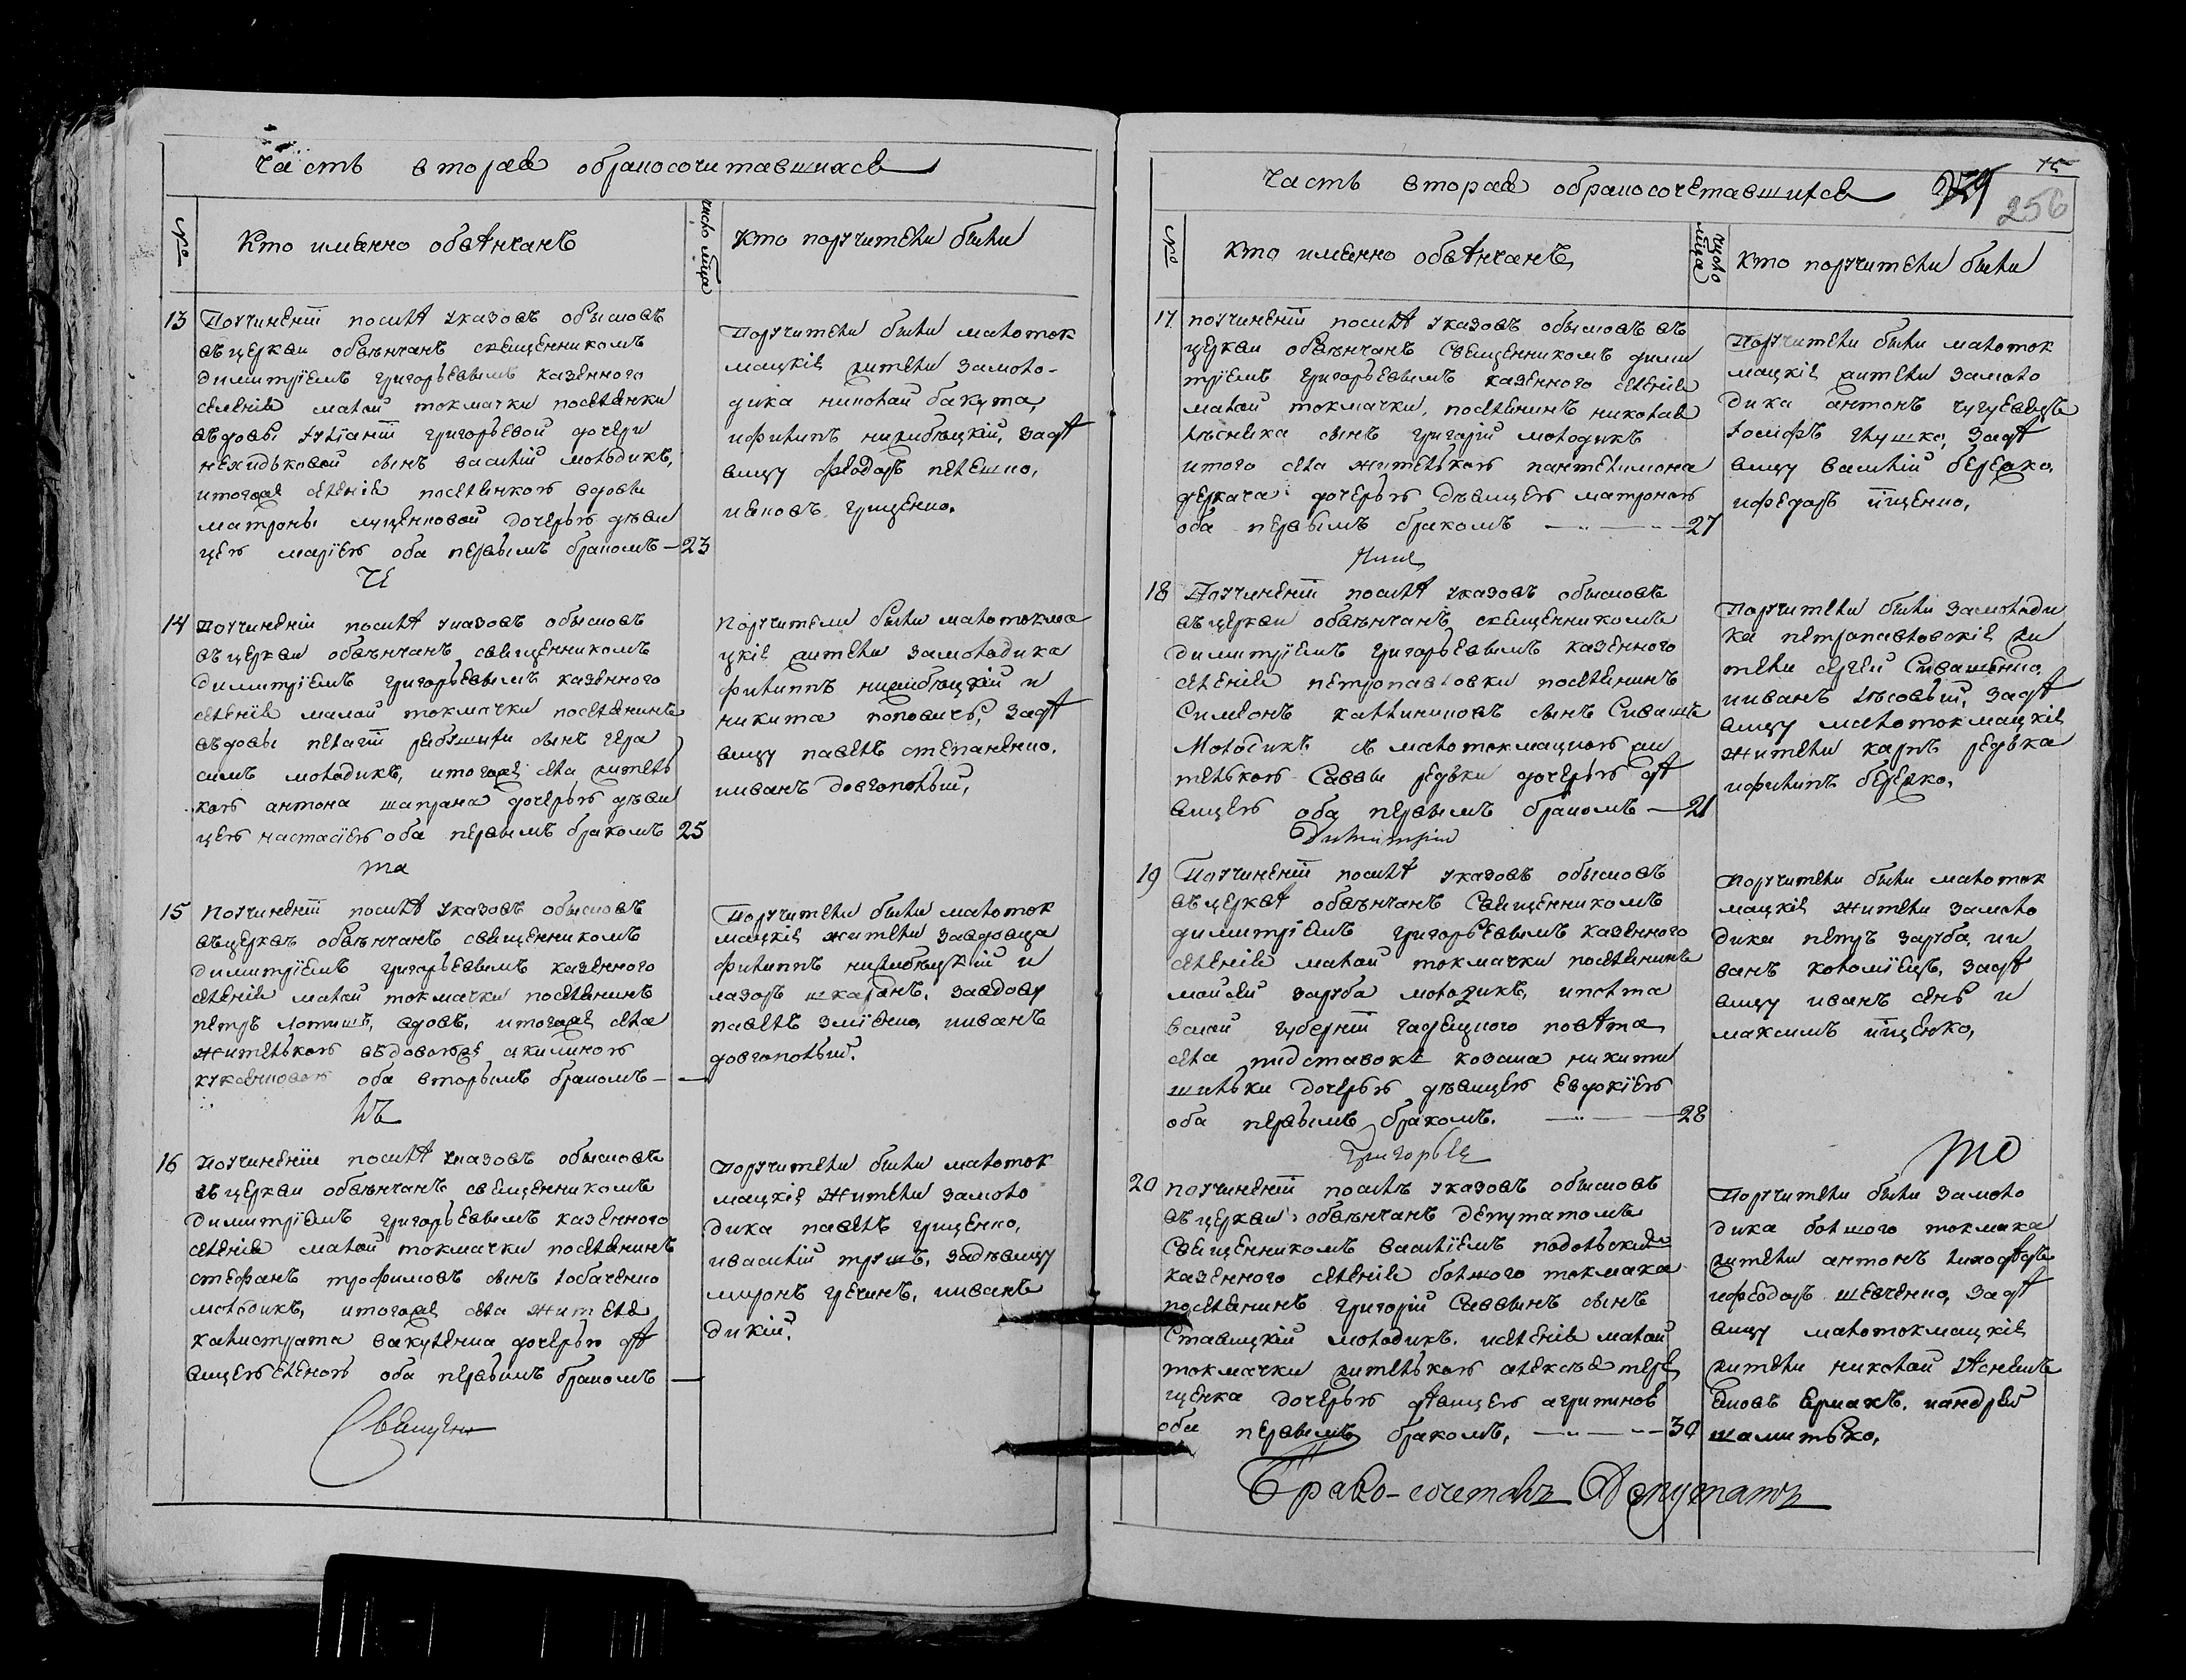 Часть вторая обракосочитавшихся
№
Кто именно обвѣнчанъ
число мца
Кто поручители были
13
Поучинении послѣ указовъ обысковъ
въ церкви обвѣнчанъ священникомъ
димитріемъ григорьевымъ казенного
селенія малой токмачки поселянки
вдовы іуліаніи григорьевой дочери
сынъ василій молодикъ,
итогоже селенія поселянкою вдовы
матроны луценковой дочерью дѣви
цею маріею оба первымъ бракомъ — 23
Поручители были малоток
мацкія жители замоло-
дика николай бакута,
ифилипъ задѣ
вицу феодоръ пелешко,
иіаковъ грищенко.
че
14
Поучинении послѣ указовъ обысковъ
въ церкви обвѣнчанъ священникомъ
димитріемъ григорьевымъ казенного
селенія малой токмачки поселянинъ
вдовы пелагіи сынъ гера
симъ молодикъ, итогоже села житель
кою антона шапрана дочерью дѣви
цею настасіею оба первымъ бракомъ 25
Поручители были малотокма
цкія жители замолодика
филиппъ и
никита поповичъ, задѣ
вицу павелъ степаненко,
ииванъ довгополый,
та
15
Поучинении послѣ указовъ обысковъ
въцерквѣ обвѣнчанъ священникомъ
димитріемъ григорьевымъ казенного
селенія малой токмачки поселянинъ
петръ лотишъ, вдовъ, итогоже села
жителькою вдовою акилиною
оба вторымъ бракомъ —
Поручители были малоток
мацкія жители завдовца
филиппъ и
лазоръ шкаранъ, завдову
павелъ зміенко, ииванъ
довгополый.
лъ
16
Поучинении послѣ указовъ обысковъ
въ церкви обвѣнчанъ священникомъ
димитріемъ григорьевымъ казенного
селенія малой токмачки поселянинъ
стефанъ трофимовъ сынъ лобаченко
молодикъ, итогоже села жителя
калистрата вакуленка дочерью дѣ
вицеюеленою оба первымъ бракомъ —
Поручители были малоток
мацкія жители замоло
дика павелъ грищенко,
ивасилій трушъ, задѣвицу
миронъ гречинъ, ииванъ
дикій.
Священ
Часть вторая обракосочетавшихся
256
№
Кто именно обвѣнчанъ
число мца
Кто поручители были
17
поучинении послѣ указовъ обысковъ въ
церкви обвѣнчанъ священникомъ дими
тріемъ григорьевымъ казенного селенія
малой токмачки, поселянинъ николая
лѣсняка сынъ григорій молодикъ
итого села жителькою пантелимона
деркача дочерью дѣвицею матроною
оба первымъ бракомъ — 27
Поручители были малоток
мацкія жители замоло
дика антонъ чугуевецъ
іосифъ глушко, задѣ
вицу василій бережко,
ифедоръ іщенко,
никъ
18
Поучинении послѣ указовъ обысковъ
въ церкви обвѣнчанъ священникомъ
димитріемъ григорьевымъ казенного
селенія петропавловки поселянинъ
Симеонъ каллиниковъ сынъ Сивашъ
Молодикъ съ малотокмацкою жи
телькою Саввы редьки дочерью дѣ
вицею оба первымъ бракомъ — 21
Поручители были замолоди
ка петропавловскія жи
тели сергей Сивашенко,
ииванъ лѣсовый, задѣ
вицу малотокмацкія
жители карпъ редька
ифилипъ бережко,
Димитрій
19
Поучинении послѣ указовъ обысковъ
въ церквѣ обвѣнчанъ священникомъ
димитріемъ григорьевымъ казенного
селенія малой токмачки поселянинъ
моисей заруба молодикъ, иполта
вской губерніи гадецкого повѣта
села пидставокъ козака никиты
шильки дочерью дѣвицею евдокіею
оба первымъ бракомъ. — 28
Поручители были малоток
мацкія жители замоло
дика петръ заруба, ии
ванъ коломіецъ, задѣ
вицу иванъ сень и
максимъ іщенко,
Григорье
то
20
поучинении послѣ указовъ обысковъ
въ церкви обвѣнчанъ депутатомъ
священникомъ василіемъ подольскимъ
казенного селенія болшого токмака
поселянинъ григорій Саввынъ сынъ
Ставицкій молодикъ. иселенія малой
токмачки жителькою алексѣя тере
щенка дочерью дѣвицею агрипиною
оба первымъ бракомъ, — 30
Поручители были замоло
дика болшого токмака
жители антонъ
ифеодоръ шевченко, задѣ
вицу малотокмацкія
жители николай
ермакъ, иандрей
шамилько,
Брако-сочеталъ Депутатъ